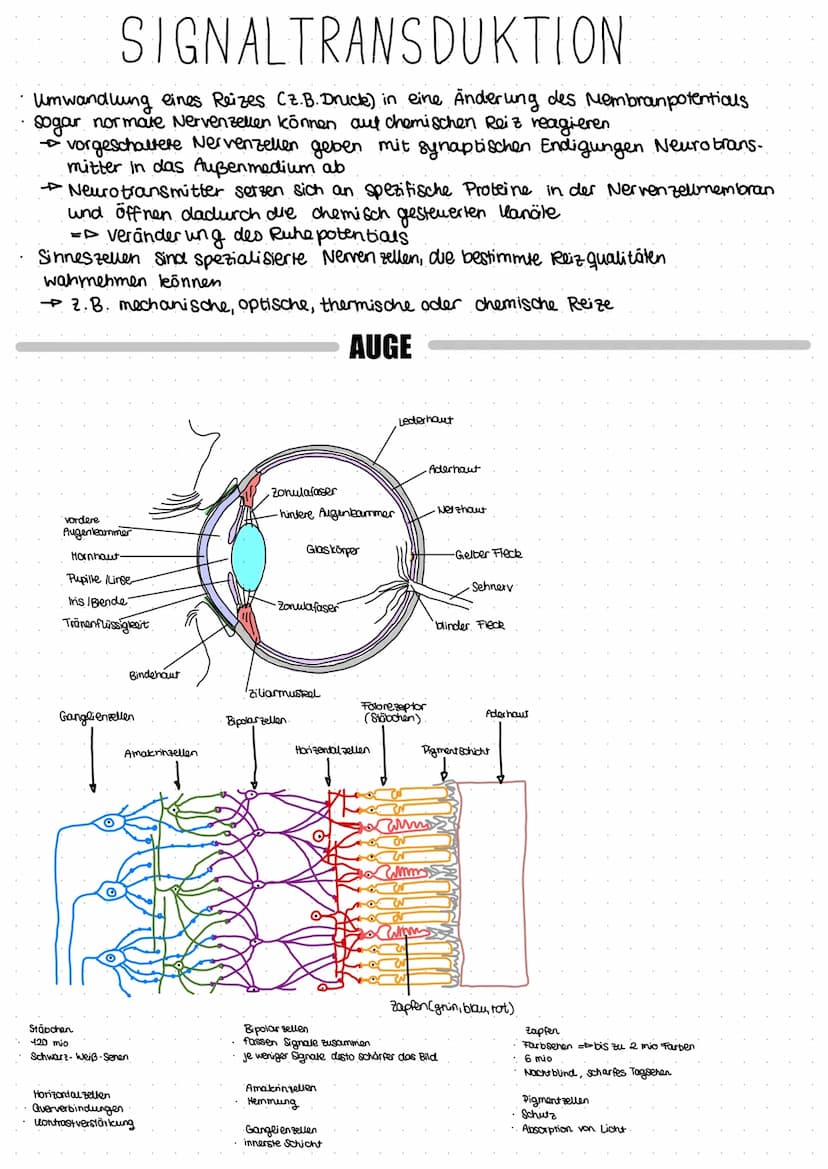 SIGNALTRANSDUKTION
· Umwandlung eines Reizes (z.B. Druck) in eine Änderung des Membranpotentials
· sogar normale Nervenzellen können auf chemischen Reiz reagieren
→ vorgeschaltete Nervenzellen geben mit synaptischen Endigungen Neurotrans-
mitter in das Außenmedium ab
→ Neurotransmitter setzen sich an spezifische Proteine in der Nervenzellmembran
und öffnen dadurch die chemisch gesteuerten Kanäle
=> Veränderung des Ruhepotentials
· Sinneszellen sind spezialisierte Nervenzellen, die bestimmte Reizqualitäten
wahrnehmen können
→ z.B. mechanische, optische, thermische oder chemische Reize
AUGE
Lederhaut
Aderhaut
Zonulafaser
Netzhaut
hintere Augenkammer
vordere
Augenkammer
Glaskörper
Gelber Fleck
Hornhaut
Pupille /Linse
Sehnerv
Iris /Blende
Zonulafaser
Tränenflüssigkeit
blinder Fleck
Bindehaut
Ziliarmuskel
Ganglienzellen
Bipolarzellen
Fotorezeptor
(Stäbchen)
Aderhaut
Amakrinzellen
Horizontalzellen
Pigmentschicht
Zapfen (grün, blau, rot)
Stäbchen
· 120 mio
· Schwarz-Weiß-Sehen
Horizontalzellen
· Querverbindungen
· Kontrastverstärkung
Bipolarzellen
· fassen Signale zusammen
· je weniger Signale desto schärfer das Bild
Amakrinzellen
· Hemmung
Ganglienzellen
· innerste Schicht
Zapfen
· Farbsehen => bis zu 2 mio Farben
· 6 mio
· Nachtblind, scharfes Tagsehen
Pigmentzellen
· Schutz
· Absorption von Licht